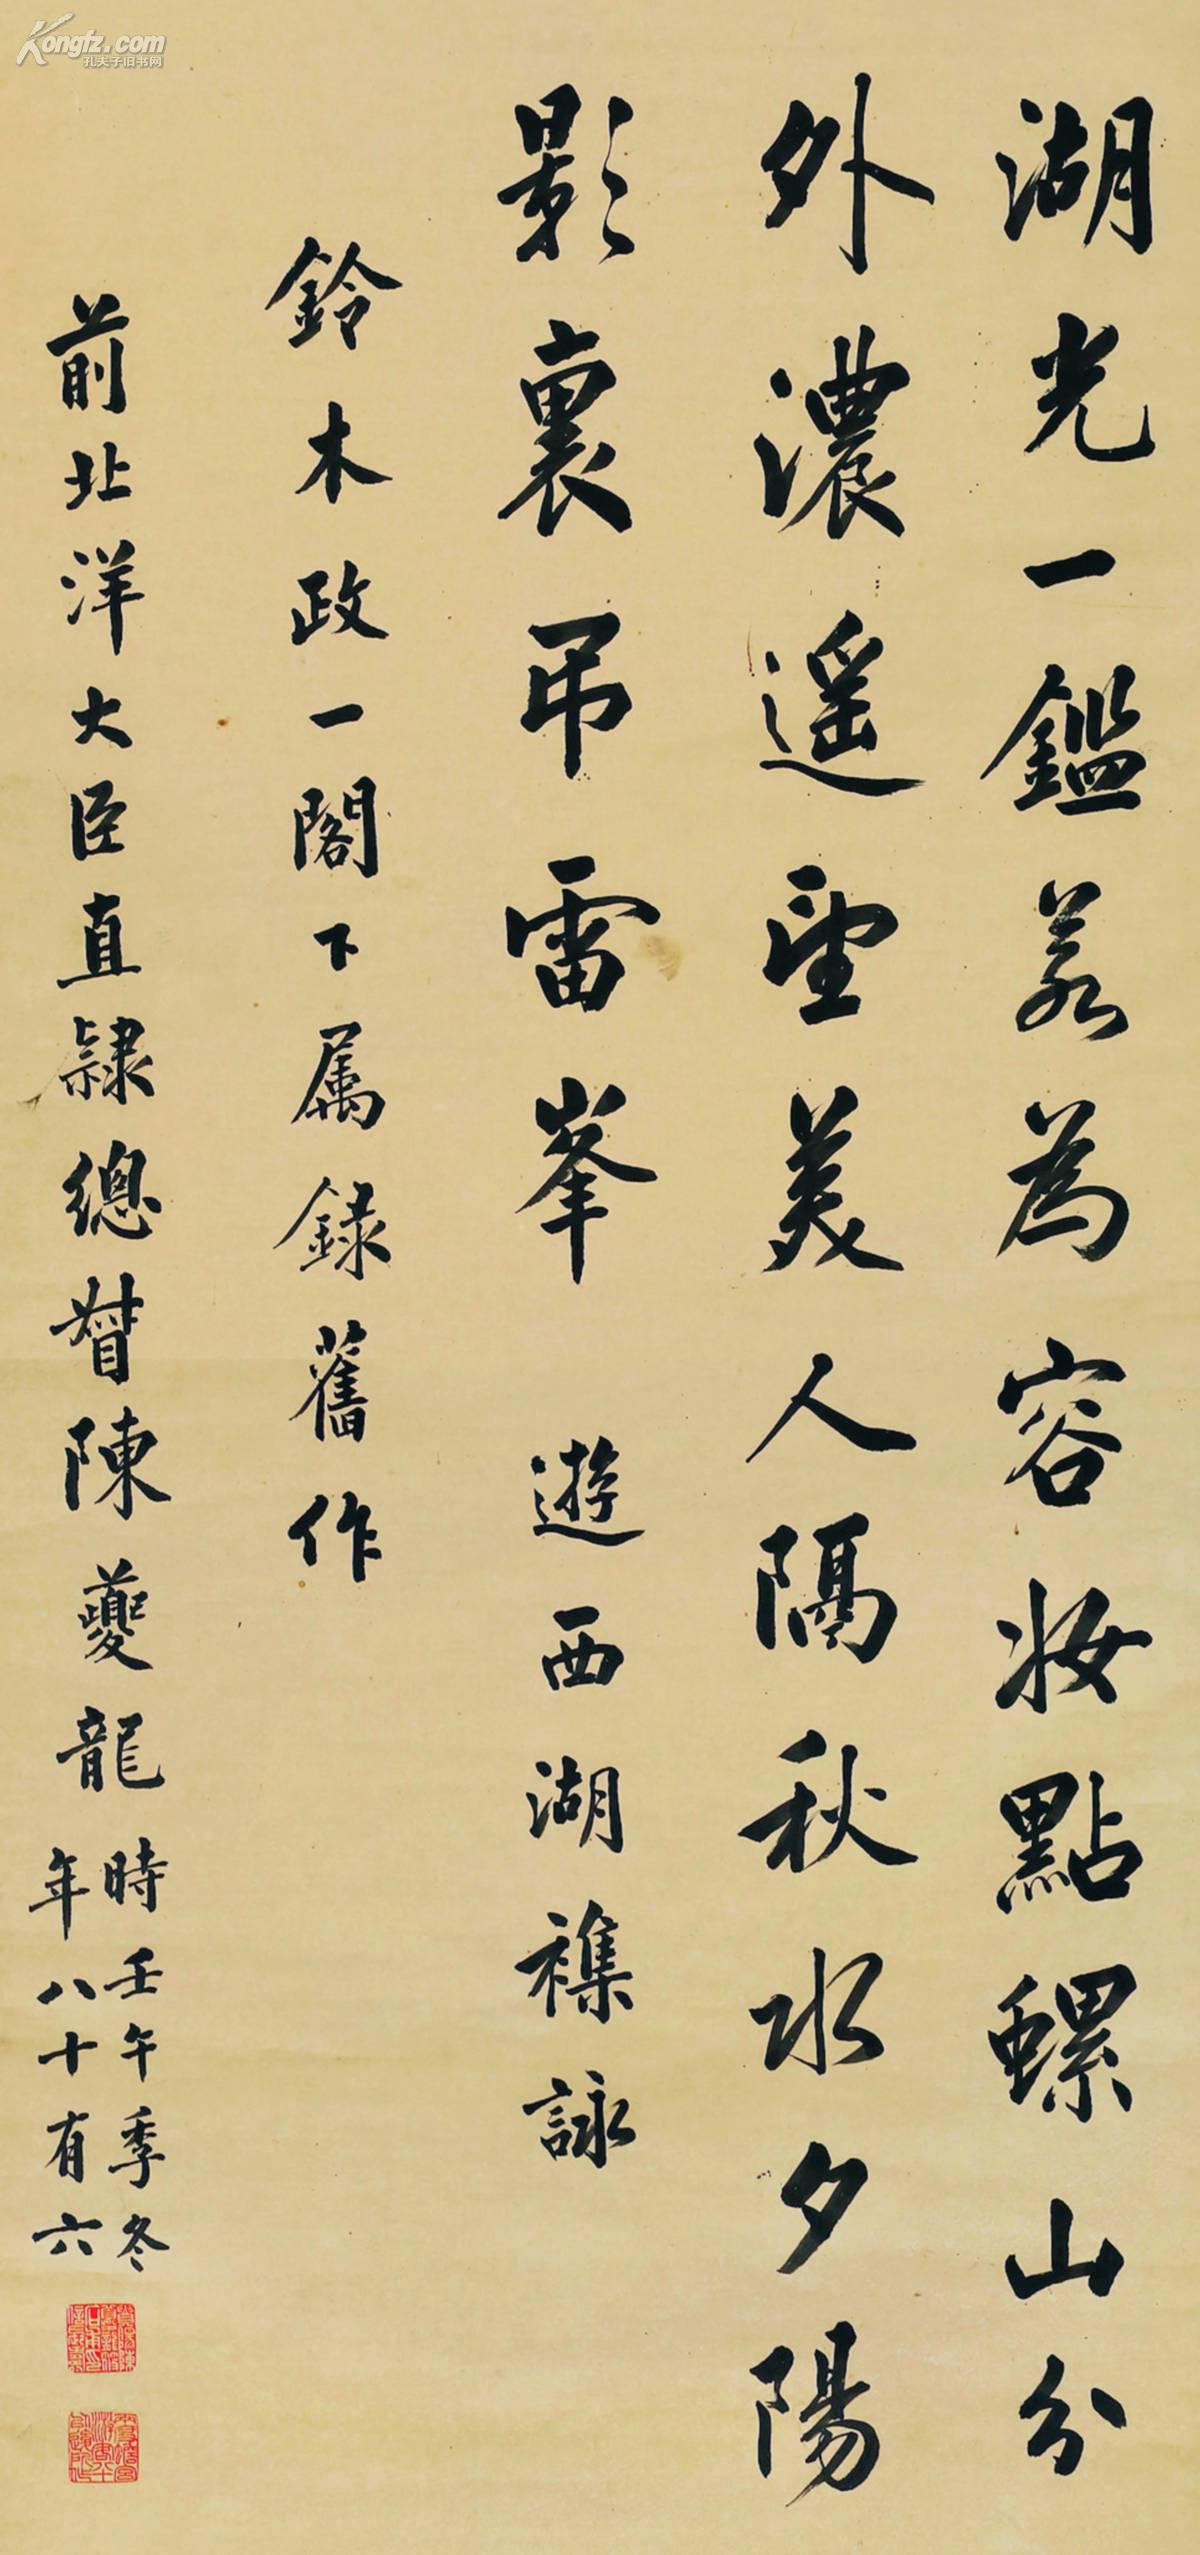 湖光一鑑若為容妝點螺山分
外濃遥望美人隔秋水夕陽
影裏弔雷峯 遊西湖襍詠
鈴木政一閣下属録舊作
前北洋大臣直隸總督陳夔龍 時壬午季冬
年八十有六
Kongfz.com
孔夫子旧书网